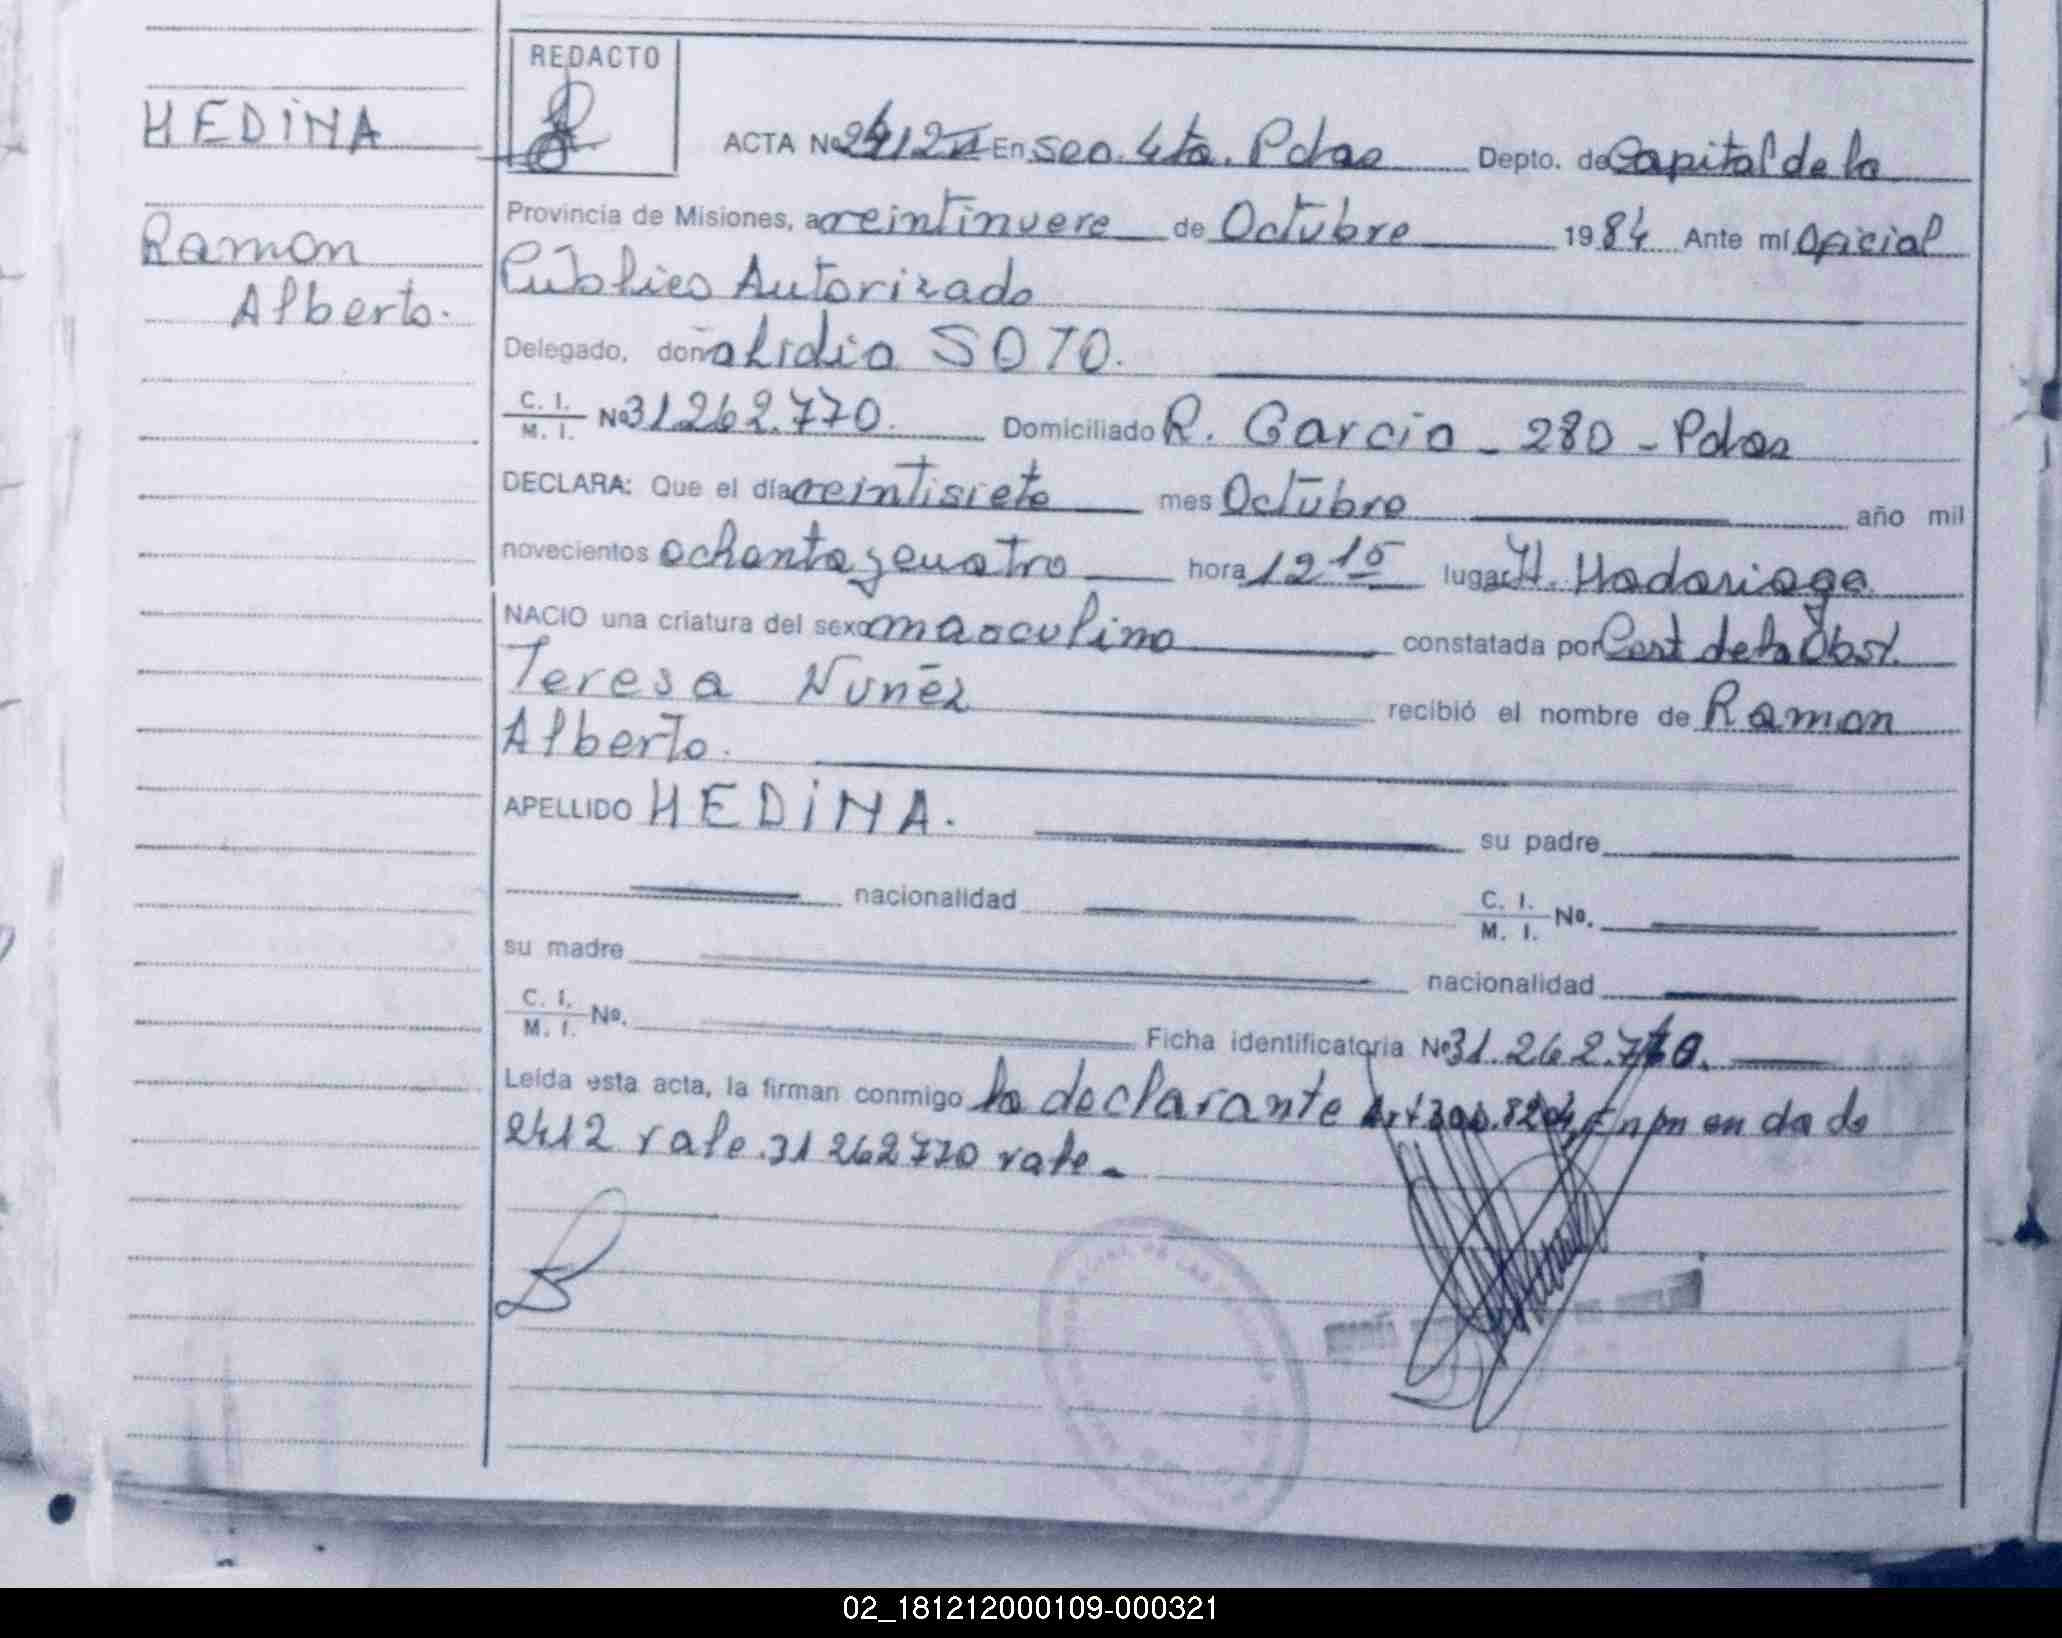 REDACTO
MEDINA
Ramon
Alberto.
ACTA Nº 2412 En Sec. 4ta. Pdas Depto. de Capital de la
Provincia de Misiones, a veintinueve de Octubre 1984 Ante mí Oficial
Público Autorizado
Delegado, doña Lidia SOTO.
C. I. / M. I. Nº 31262.770. Domiciliado R. Garcia - 280 - Pdas
DECLARA: Que el día veintisiete mes Octubre año mil
novecientos ochenta y cuatro hora 12 15 lugar H. Madariaga
NACIO una criatura del sexo masculino constatada por Cert de la Obst.
Teresa Nuñez recibió el nombre de Ramon
Alberto.
APELLIDO MEDINA. su padre
nacionalidad C. I. / M. I. Nº.
su madre nacionalidad
C. I. / M. I. Nº. Ficha identificatoria Nº 31.262.770.
Leída esta acta, la firman conmigo la declarante Enmendado
2412 vale. 31262770 vale.-
02_181212000109-000321